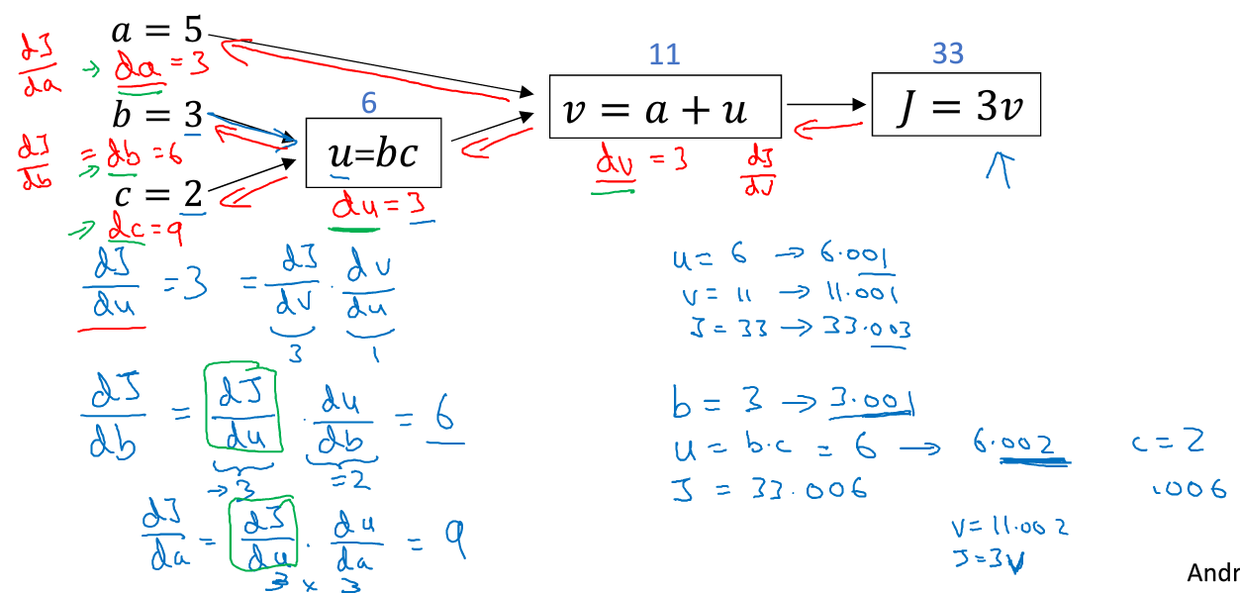 a = 5
dJ/da → da = 3
b = 3
dJ/db = → db = 6
c = 2
→ dc = 9
6
u=bc
du = 3
11
v = a + u
dv = 3 dJ/dv
33
J = 3v
↑
dJ/du = 3 = dJ/dv · dv/du
3 1
dJ/db = dJ/du · du/db = 6
→ 3 = 2
dJ/da = dJ/du · du/da = 9
3 × 3
u = 6 → 6.001
v = 11 → 11.001
J = 33 → 33.003
b = 3 → 3.001
u = b·c = 6 → 6.002 c = 2
J = 33.006 .006
v = 11.002
J = 3v
Andr